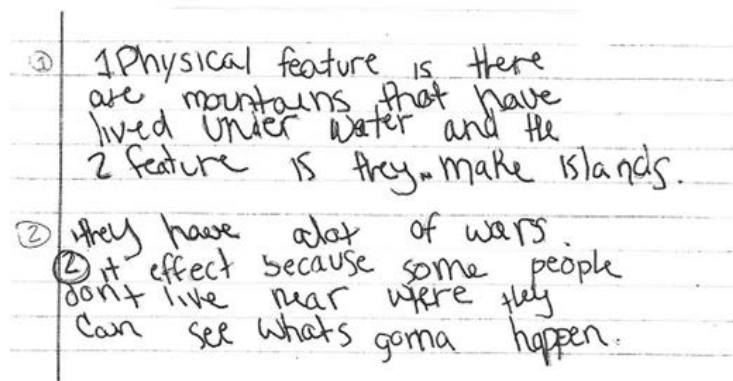 ① 1 Physical feature is there
are mountains that have
lived under water and the
2 feature is they make islands.
② they have alot of wars.
② it effect because some people
dont live near where they
can see whats gonna happen.